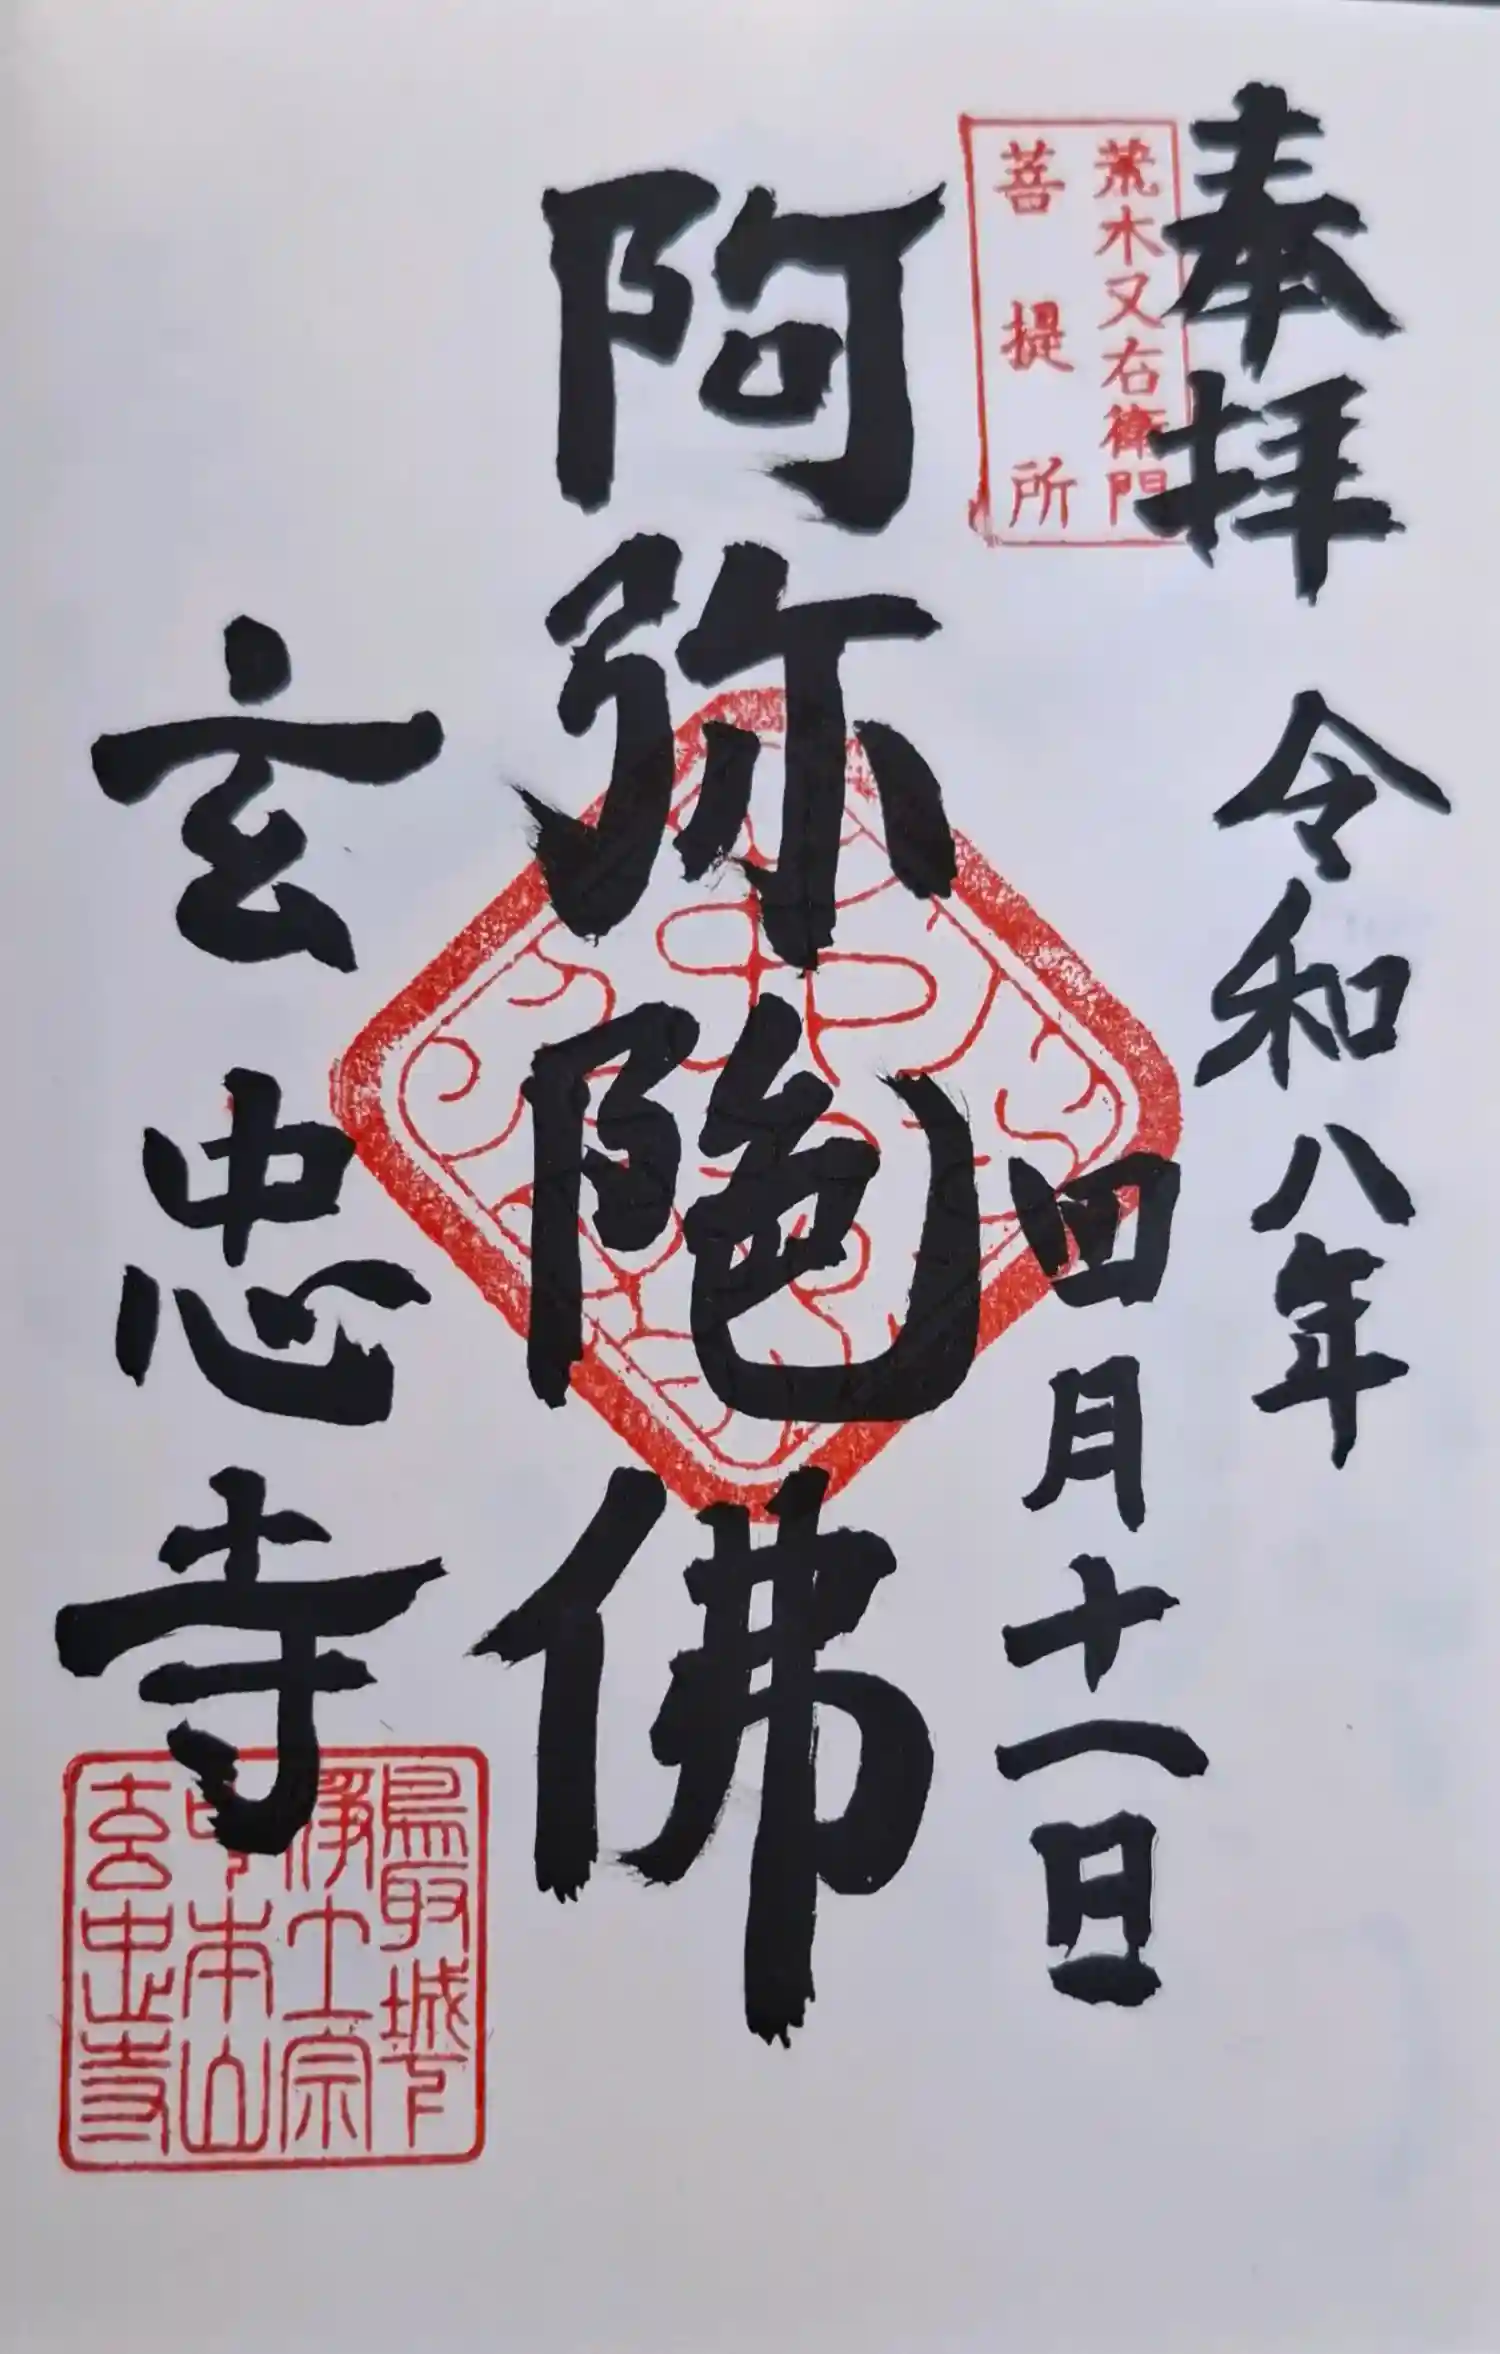 奉拝
令和八年
四月十一日
荒木又右衛門
菩提所
阿弥陀佛
玄忠寺
鳥取城下
浄土宗
中本山
玄忠寺